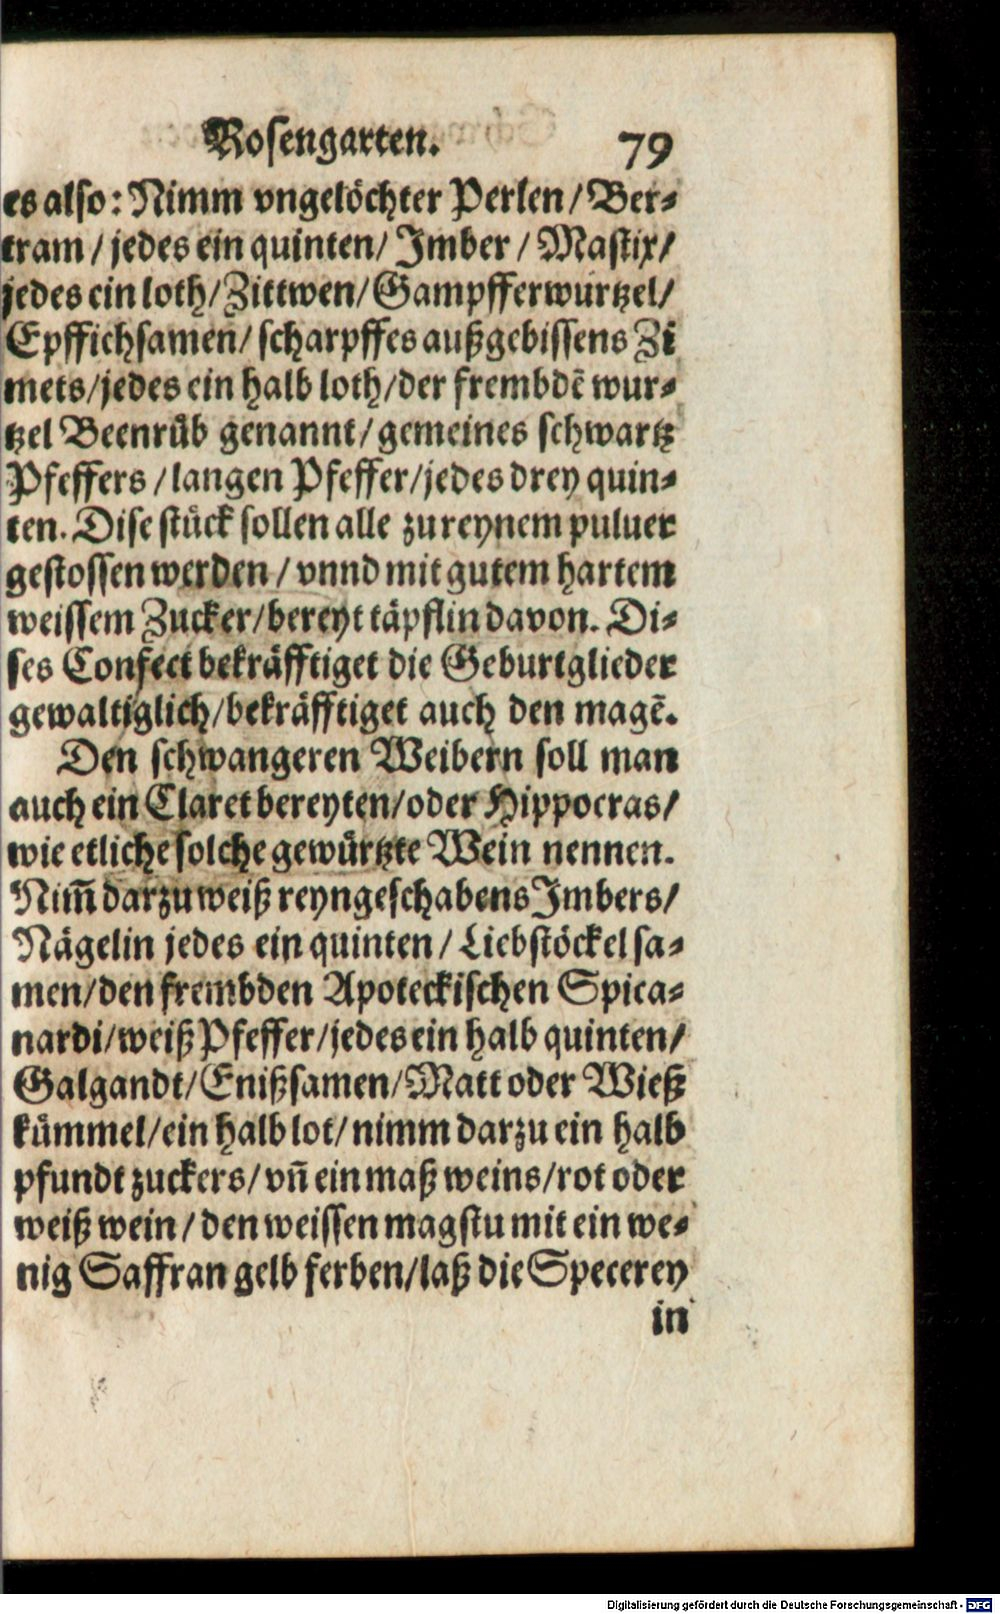 Rosengarten. 79
es also: Nimm vngelöchter Perlen/ Ber-
tram/ jedes ein quinten/ Jmber/ Mastix/
jedes ein loth/ Zittwen/ Gampfferwurtzel/
Epffichsamen/ scharpffes außgebissens Zi
mets/ jedes ein halb loth/ der frembdē wur-
tzel Beenrůb genannt/ gemeines schwartz
Pfeffers/ langen Pfeffer/ jedes drey quin-
ten. Dise stück sollen alle zu reynem puluer
gestossen werden/ vnnd mit gutem hartem
weissem Zucker/ bereyt täpflin davon. Di-
ses Confect bekräfftiget die Geburtglieder
gewaltiglich/ bekräfftiget auch den magē.
Den schwangeren Weibern soll man
auch ein Claret bereyten/ oder Hippocras/
wie etliche solche gewürtzte Wein nennen.
Nim̄ darzu weiß reyngeschabens Jmbers/
Nägelin jedes ein quinten/ Liebstöckel sa-
men/ den frembden Apoteckischen Spica-
nardi/ weiß Pfeffer/ jedes ein halb quinten/
Galgandt/ Enißsamen/ Matt oder Wieß
kümmel/ ein halb lot/ nimm darzu ein halb
pfundt zuckers/ vn̄ ein maß weins/ rot oder
weiß wein/ den weissen magstu mit ein we-
nig Saffran gelb ferben/ laß die Specerey
in
Digitalisierung gefördert durch die Deutsche Forschungsgemeinschaft - DFG